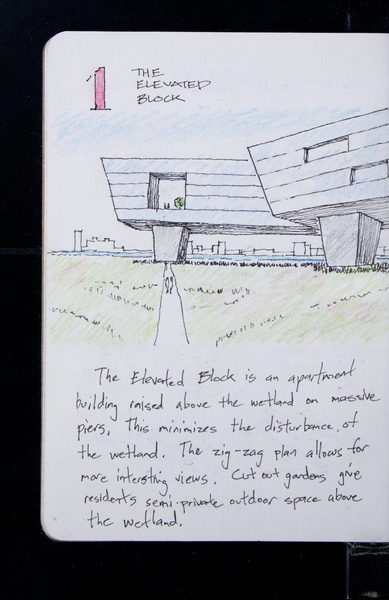 1
THE
ELEVATED
BLOCK
The Elevated Block is an apartment
building raised above the wetland on massive
piers. This minimizes the disturbance of
the wetland. The zig-zag plan allows for
more intersting views. Cut out gardens give
residents semi-private outdoor space above
the wetland.